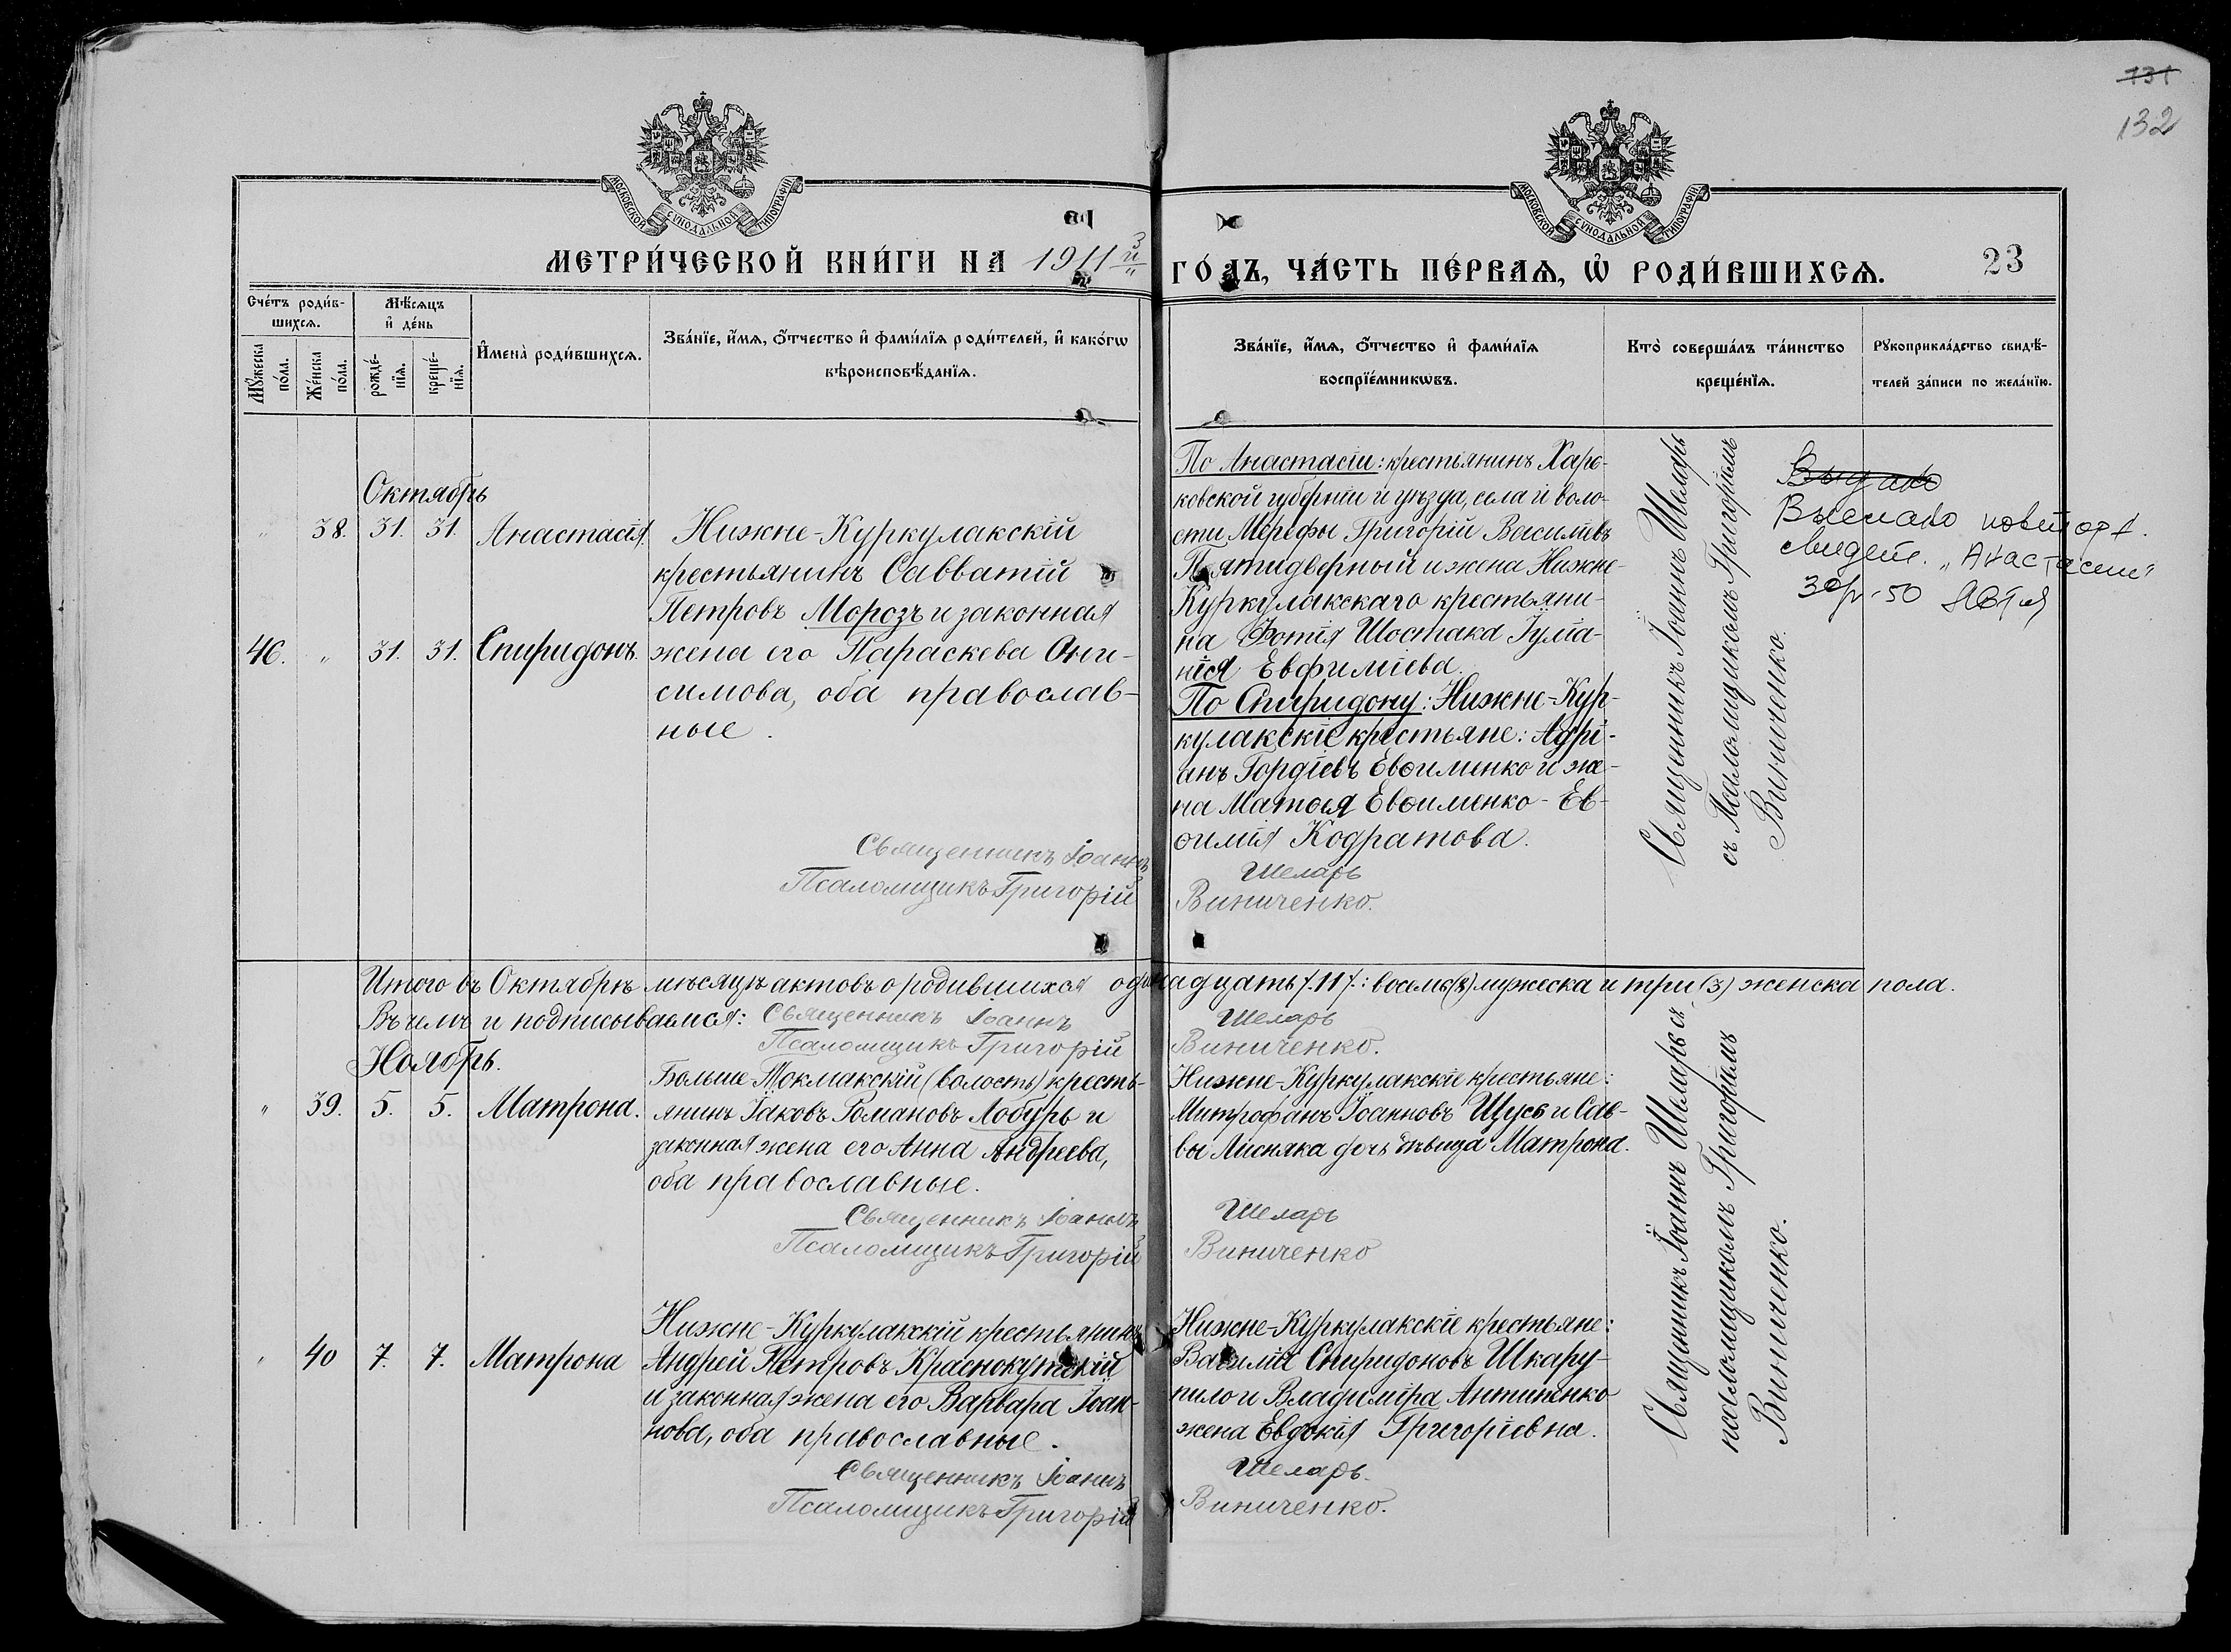 131
132
МОСКОВСКОЙ СѴНОДАЛЬНОЙ ТИПОГРАФІИ
МОСКОВСКОЙ СѴНОДАЛЬНОЙ ТИПОГРАФІИ
МЕТРИ́ЧЕСКОЙ КНИ́ГИ НА 1911й ГО́ДЪ, ЧА́СТЬ ПЕ́РВАѦ, Ѽ РОДИ́ВШИХСѦ. 23
Сче́тъ роди́в-
шихсѧ.
Мꙋ́жеска
по́ла.
Же́нска
по́ла.
Мѣ́сяцъ
и҆ де́нь
рожде́-
нїѧ.
креще́-
нїѧ.
И҆мена̀ роди́вшихсѧ.
Зва́нїе, и҆́мѧ, ѻ҆́тчество и҆ фами́лїѧ роди́телей, и҆ како́гѡ
вѣроисповѣ́данїѧ.
Зва́нїе, и҆́мѧ, ѻ҆́тчество и҆ фами́лїѧ
воспрїе́мникѡвъ.
Кто̀ соверша́лъ та́инство
креще́нїѧ.
Рꙋкоприкла́дство свидѣ́-
телей за́писи по жела́нїю.
Октябрь
" 38. 31. 31. Анастасія.
46. " 31. 31. Спиридонъ.
Нижне-Куркулакскій
крестьянинъ Савватій
Петровъ Морозъ и законная
жена его Параскева Они-
симова, оба православ-
ные.
Священникъ Іоаннъ Шеларь
Псаломщикъ Григорій Виниченко.
По Анастасіи: крестьянинъ Харь-
ковской губерніи и уѣзда, села и воло-
сти Мерефы Григорій Васильевъ
Пятидверный и жена Нижне-
Куркулакскаго крестьяни-
на Фотія Шостака Іулiа-
нія Евфиміева.
По Спиридону: Нижне-Кур-
кулакскіе крестьяне: Адрі-
анъ Гордіевъ Евѳименко и же-
на Матѳея Евѳименко - Ев-
ѳимія Кодратова.
Священникъ Іоаннъ Шеларь
съ Псаломщикомъ Григоріемъ
Виниченко.
Выслано повторн.
свидет. "Анастасии"
30/V-50
Итого въ Октябрѣ мѣсяцѣ актовъ о родившихся одинадцать /.11/.: восемь (8) мужеска и три (3) женска пола.
Въ чемъ и подписываемся: Священникъ Іоаннъ Шеларь
Псаломщикъ Григорій Виниченко.
Ноябрь.
" 39. 5. 5. Матрона.
Больше-Токмакскій (волость) кресть-
янинъ Іаковъ Романовъ Лобурь и
законная жена его Анна Андреева,
оба православные.
Священникъ Іоаннъ Шеларь
Псаломщикъ Григорій Виниченко
Нижне-Куркулакскіе крестьяне:
Митрофанъ Іоанновъ Щусь и Сав-
вы Лисняка дочь дѣвица Матрона.
" 40 7. 7. Матрона
Нижне-Куркулакскій крестьянинъ
Андрей Петровъ Краснокутскій
и законная жена его Варвара Іоан-
нова, оба православные.
Священникъ Іоаннъ Шеларь.
Псаломщикъ Григорій Виниченко.
Нижне-Куркулакскіе крестьяне:
Василій Спиридоновъ Шкару-
пило и Владиміра Антипенко
жена Евдокія Григоріевна.
Священникъ Іоаннъ Шеларь съ
псаломщикомъ Григоріемъ
Виниченко.